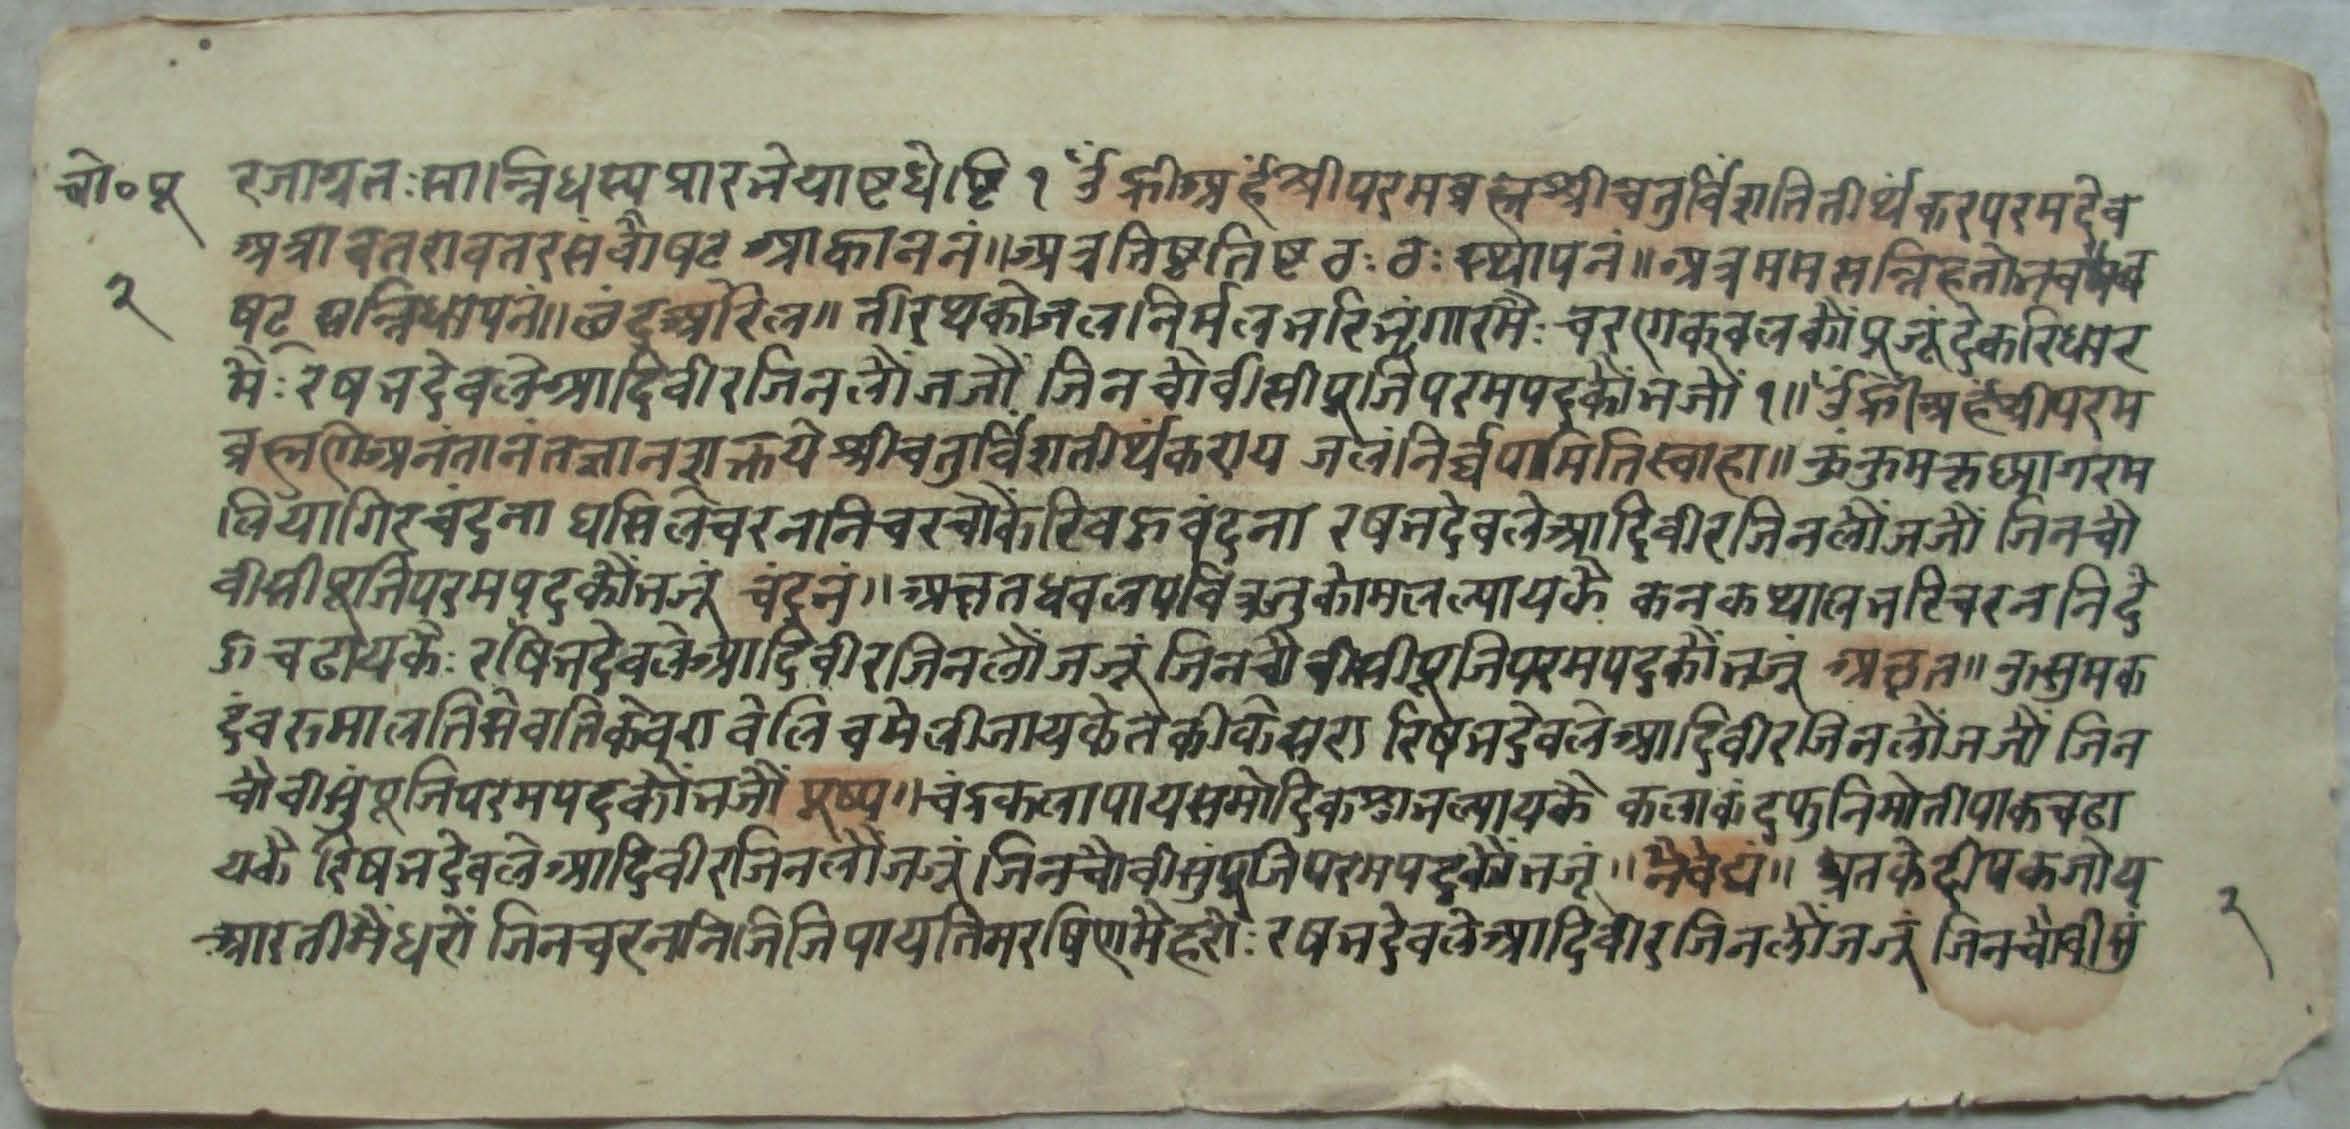 चो॰पू
२
रजाग्रतः सान्निधस्य प्रारभेयाष्टधेष्टि १ ॐ ह्रीं अर्हं श्रीपरमब्रह्म श्रीचतुर्विंशतितीर्थंकरपरमदेव
अत्रावतरावतर संवौषट आह्वाननं॥ अत्र तिष्ठ तिष्ट ठः ठः स्थापनं॥ अत्र मम सन्निहतो भव
षट सन्निधापनं॥ छंद अरिल॥ तीरथको जल निर्मल भरि भृंगारमैः चरणकवलकौं पूजूं देकरि धार
मैः रिषभदेव ले आदि वीर जिनलौं जजौं जिन चौवीसी पूजि परमपदकौं भजौं १॥ ॐ ह्रीं अर्हं श्रीपरम
ब्रह्मणे अनंतानंतज्ञानशक्तये श्रीचतुर्विंशतीर्थंकराय जलं निर्व्वपामिति स्वाहा॥ कुंकुम कृष्णागर म
लियागिर चंदना घसि ले चरननि चरचौं करि वंदना रषभदेव ले आदि वीर जिनलौं जजौं जिन चौ
वीसी पूजि परमपदकौं भजूं चंदनं॥ अक्षत धवल पवित्र जु कोमल ल्यायकै कनक थाल भरि चरननि दे
उ चढायकैः रषिभदेव ले आदि वीर जिनलौं जजूं जिन चौवीसी पूजि परमपदकौं भजूं अक्षत॥ कुसुम क
दंव रु मालति सेवति केवरा वेलि चमेली जाय केतकी केसरा रिषभदेव ले आदि वीर जिनलौं जजौं जिन
चौवीसुं पूजि परमपदकौं भजौं पूष्प॥ चंद्रकला पायस मोदिक ल्यायकै कलाकंद फुनि मोतीपाक चढा
यकै रिषभदेव ले आदि वीर जिनलौं जजूं जिन चौवीसुं पूजि परमपदकौं भजूं॥ नैवेद्यं॥ घ्रतके दीपक जोय
आरती मैं धरौं जिन चरननि रषभदेव ले आदि वीर जिनलौं जजूं जिन चौवीसुं
२